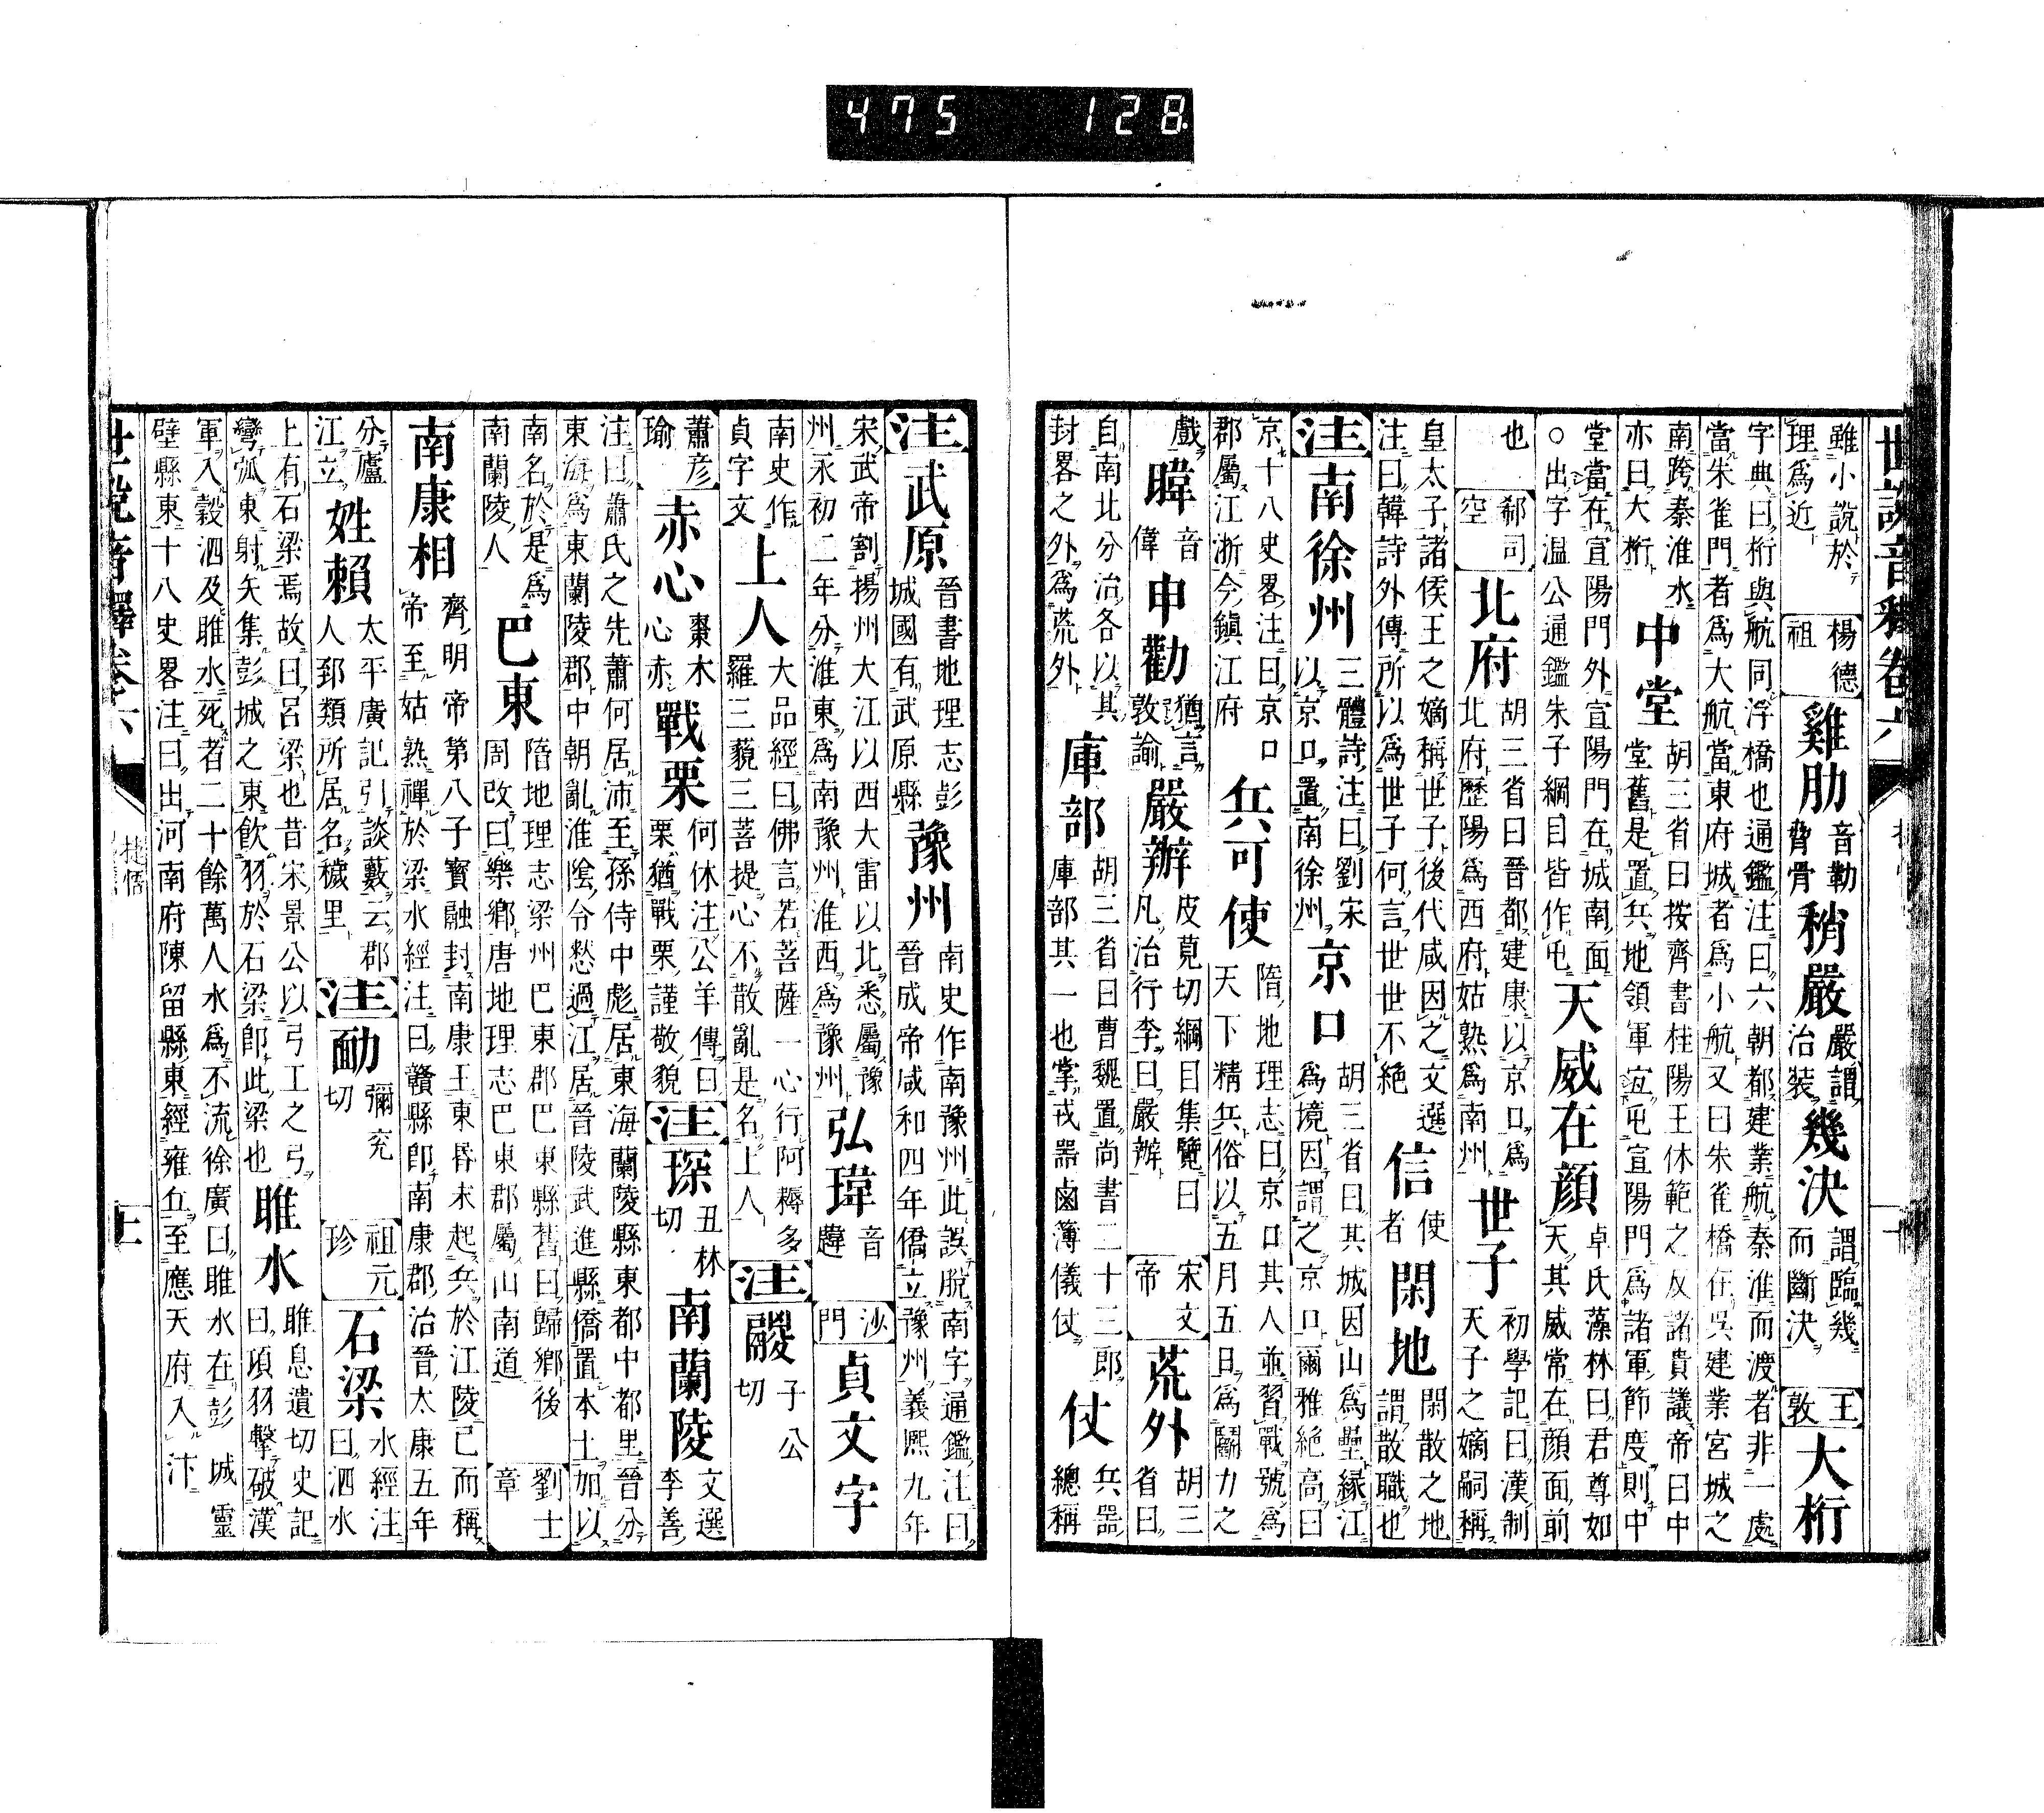 475 128
雖小說於理爲近 楊德祖 雞肋 音勒脅骨 稍嚴 嚴謂治装 幾決 謂臨幾而斷決 王敦 大桁
字典曰桁與航同浮橋也通鑑注曰六朝都建業航秦淮而渡者非一處當朱雀門者爲大航當東府城者爲小航又曰朱雀橋在吳建業宮城之
南跨秦淮水亦曰大桁 中堂 胡三省曰按齊書桂陽王休範之反諸貴議帝曰中堂舊是置兵地領軍宜屯宣陽門爲諸軍節度則中
堂當在宣陽門外宣陽門在城南面○出字温公通鑑朱子綱目皆作屯 天威在顏 卓氏藻林曰君尊如天其威常在顏面前
也 郗司空 北府 胡三省曰晉都建康以京口爲北府歷陽爲西府姑熟爲南州 世子 初學記曰漢制天子之嫡嗣稱
皇太子諸侯王之嫡稱世子後代咸因之文選注曰韓詩外傳所以爲世子何言世世不絕 信 使者 閑地 閑散之地謂散職也
注 南徐州 三體詩注曰劉宋以京口置南徐州 京口 胡三省曰其城因山爲壘縁江爲境因謂之京口爾雅絕高曰
京十八史畧注曰京口郡屬江浙今鎮江府 兵可使 隋地理志曰京口其人並習戰號爲天下精兵俗以五月五日爲鬭力之
戲 暐 音偉 申勸 猶言敦諭 嚴辦 皮莧切綱目集覽曰凡治行李曰嚴辦 宋文帝 荒外 胡三省曰
自南北分治各以其封畧之外爲荒外 庫部 胡三省曰曹魏置尚書二十三郎庫部其一也掌戎器鹵簿儀仗 仗 兵器總稱
注 武原 晉書地理志彭城國有武原縣 豫州 南史作南豫州此誤脫南字通鑑注曰晉成帝咸和四年僑立豫州義熙九年
宋武帝割揚州大江以西大雷以北悉屬豫州永初二年分淮東爲南豫州淮西爲豫州 弘瑋 音韙 沙門 貞文字
南史作貞字文 上人 大品經曰佛言若菩薩一心行阿耨多羅三藐三菩提心不散亂是名上人 注 騣 子公切
蕭彦瑜 赤心 棗木心赤 戰栗 何休注公羊傳曰栗猶戰栗謹敬貌 注 琛 丑林切 南蘭陵 文選李善
注曰蕭氏之先蕭何居沛至孫侍中彪居東海蘭陵縣東都中都里晉分東海爲東蘭陵郡中朝亂淮陰令愸過江居晉陵武進縣僑置本土加以
南名於是爲南蘭陵人 巴東 隋地理志梁州巴東郡巴東縣舊曰歸鄉後周改曰樂鄉唐地理志巴東郡屬山南道 劉士章
南康相 齊明帝第八子寶融封南康王東昏末起兵於江陵已而稱帝至姑熟禪於梁水經注曰贛縣即南康郡治晉太康五年
分廬江立 姓賴 太平廣記引談藪云郡人郅類所居名穢里 注 勔 彌兖切 祖元珍 石梁 水經注曰泗水
上有石梁焉故曰呂梁也昔宋景公以弓工之弓彎弧東射矢集彭城之東飲羽於石梁即此梁也 睢水 睢息遺切史記曰項羽擊破漢
軍入穀泗及睢水死者二十餘萬人水爲不流徐廣曰睢水在彭城靈壁縣東十八史畧注曰出河南府陳留縣東經雍丘至應天府入汴